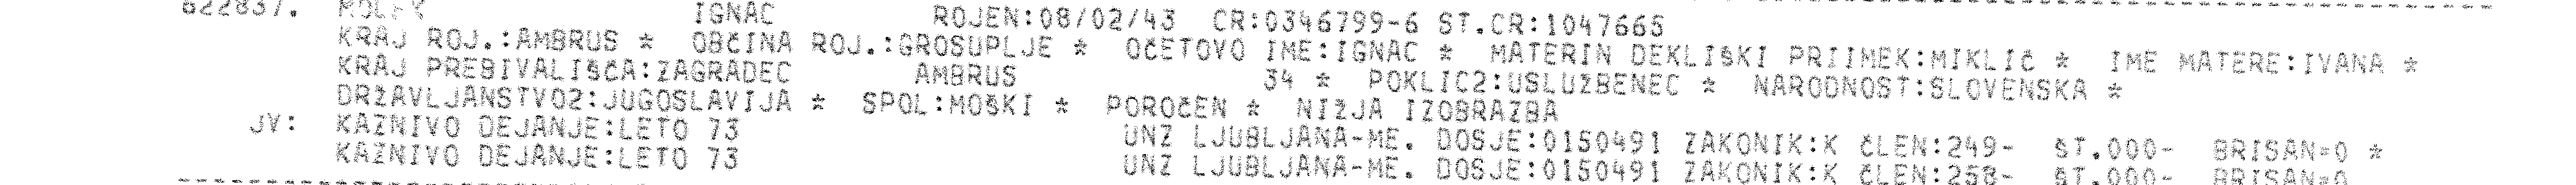 622837. MOLEK IGNAC ROJEN:08/02/43 CR:0346799-6 ST.CR:1047665
KRAJ ROJ.:AMBRUS * OBČINA ROJ.:GROSUPLJE * OČETOVO IME:IGNAC * MATERIN DEKLIŠKI PRIIMEK:MIKLIČ * IME MATERE:IVANA *
KRAJ PREBIVALIŠČA:ZAGRADEC AMBRUS 34 * POKLIC2:USLUŽBENEC * NARODNOST:SLOVENSKA *
DRŽAVLJANSTVO2:JUGOSLAVIJA * SPOL:MOŠKI * POROČEN * NIŽJA IZOBRAZBA
JV: KAZNIVO DEJANJE:LETO 73 UNZ LJUBLJANA-ME. DOSJE:0150491 ZAKONIK:K ČLEN:249- ŠT.000- BRISAN=0 *
KAZNIVO DEJANJE:LETO 73 UNZ LJUBLJANA-ME. DOSJE:0150491 ZAKONIK:K ČLEN:258- ŠT.000- BRISAN=0